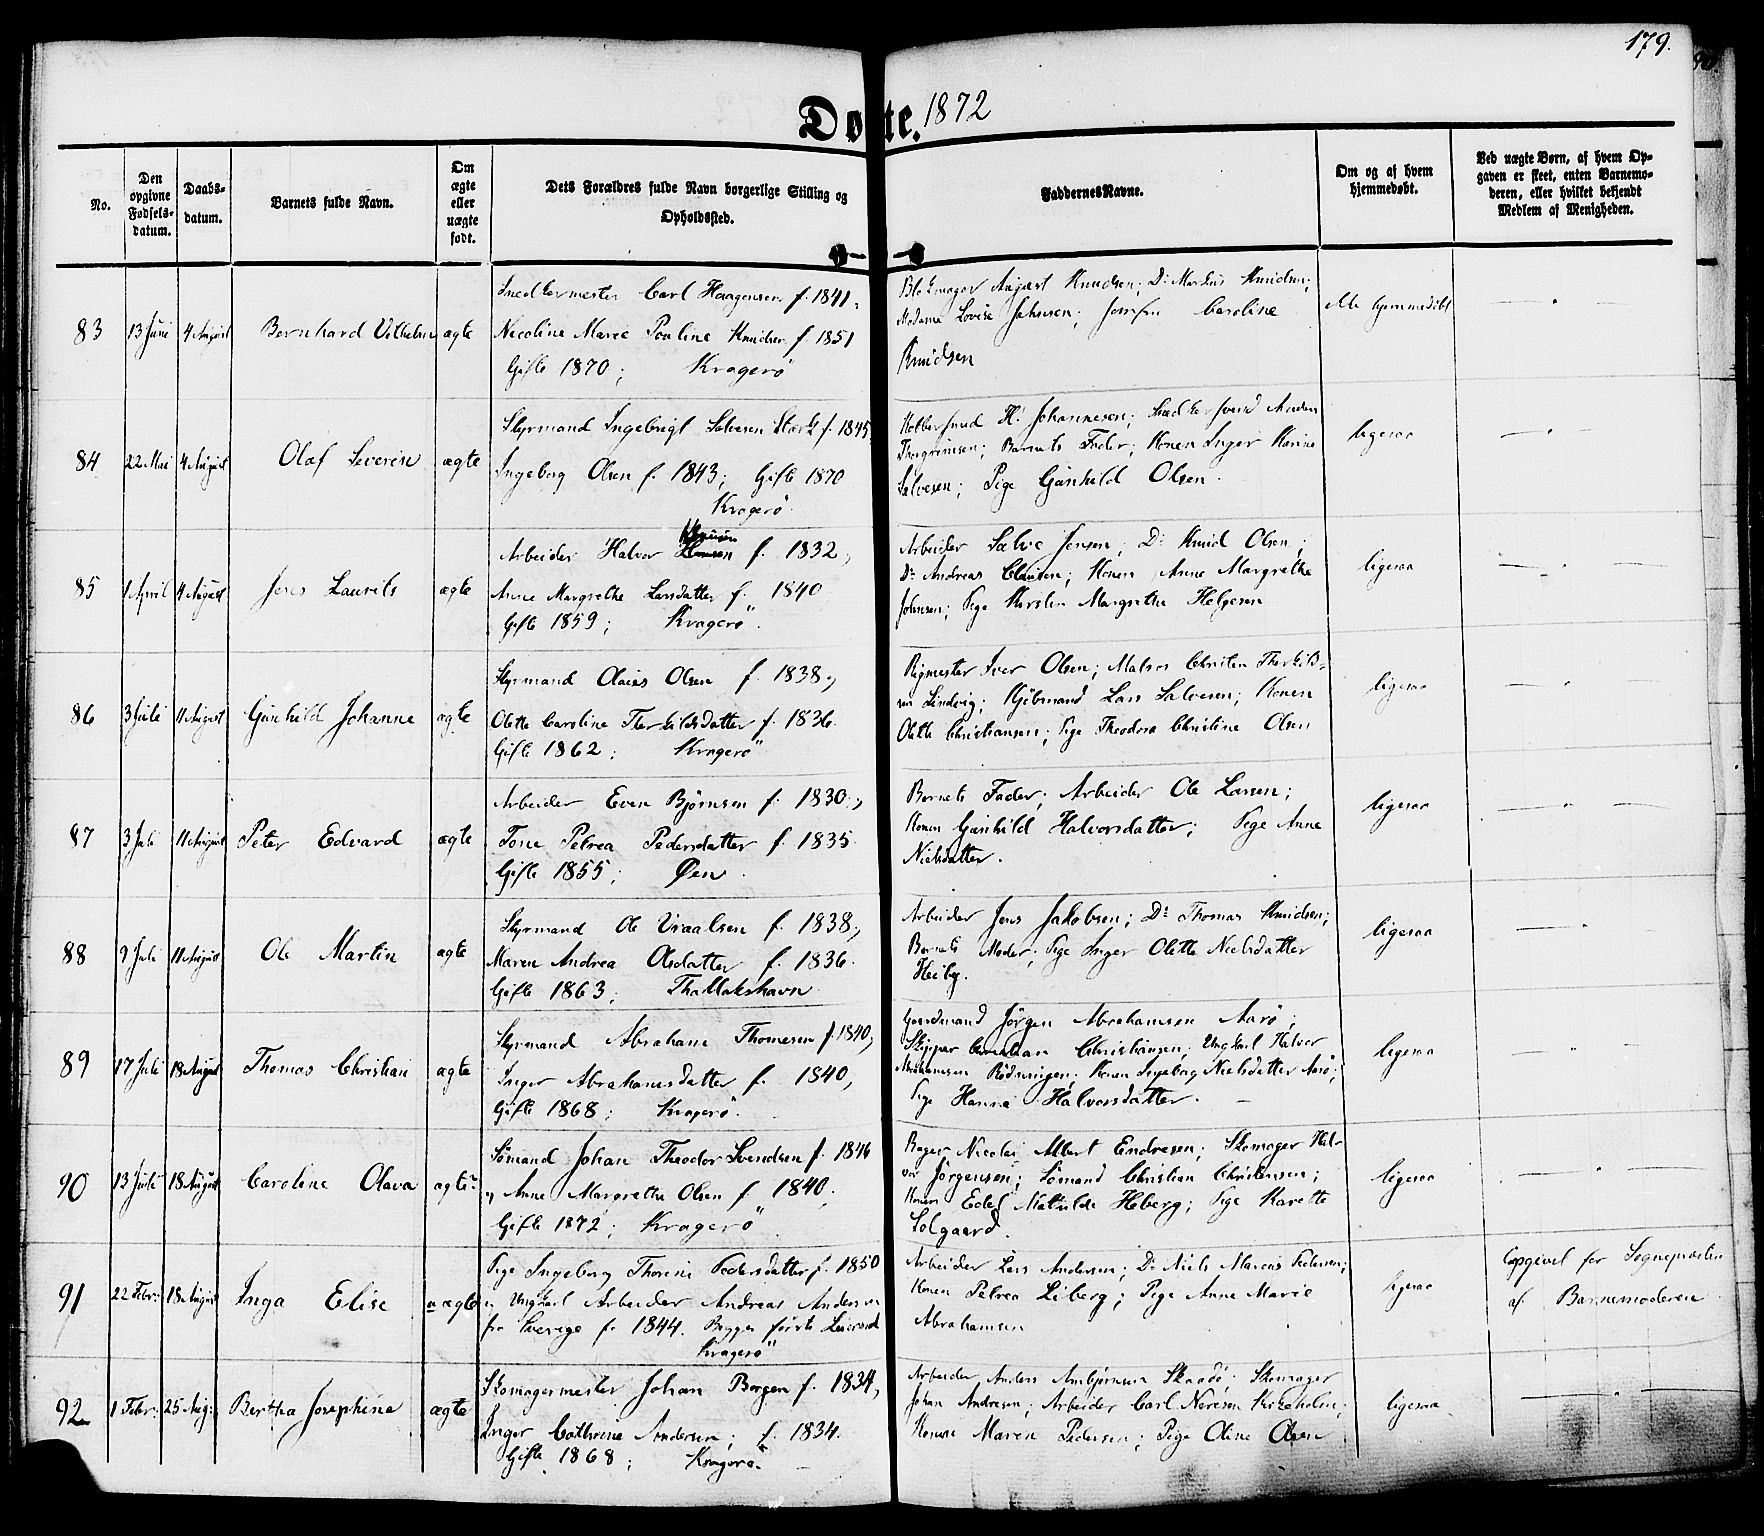 179.
Døbte. 1872
No.
Den opgivne Fødsels-datum.
Daabs-datum.
Barnets fulde Navn.
Om ægte eller uægte født.
Dets Forældres fulde Navn borgerlige Stilling og Opholdssted.
Faddernes Navne.
Om og af hvem hjemmedøbt.
Ved uægte Børn, af hvem Opgaven er skeet, enten Barnemoderen, eller hvilket bekjendt Medlem af Menigheden.
83 13 Juni 4 August Bernhard Vilhelm ægte
Snedkermester Carl Haagensen f. 1841,
Nicoline Marie Pouline Knudsen f. 1851
Gifte 1870; Kragerö
Blokmager August Knudsen; Do Markus Knudsen;
Madame Lovise Jahnsen; Jomfru Caroline
Knudsen
ikke hjemmedöbt
84 22 Mai 4 August Olaf Severin ægte
Styrmand Ingebrigt Salvesen Stærk f. 1845,
Ingeborg Olsen f. 1843; Gifte 1870
Kragerö
H. Johannesen; Snedkersvend Anders
Thorgrimsen; Barnets Fader; Konen Inger Karine
Salvesen; Pige Gunhild Olsen.
ligesaa
85 1 April 11 August Jens Laurits ægte
Arbeider Halvor f. 1832,
Anne Margrethe Larsdatter f. 1840
Gifte 1859; Kragerö.
Arbeider Salve Jensen; Do Knud Olsen;
Do Andreas Clausen; Konen Anne Margrethe
Johnsen; Pige Kirsten Margrethe Helgesen
ligesaa
86 3 Juli 11 August Gunhild Johanne ægte
Styrmand Olaus Olsen f. 1838,
Olette Caroline Therkildsdatter f. 1836.
Gifte 1862; Kragerö
Rigmester Iver Olsen; Matros Christen Therkild-
sen Lindvig; Kjöbmand Lars Salvesen; Konen
Olette Christiansen; Pige Theodora Christine Olsen
ligesaa
87 3 Juli 11 August Peter Edvard ægte
Arbeider Even Bjørnsen f. 1830,
Tone Petrea Pedersdatter f. 1835.
Gifte 1855; Øen.
Barnets Fader; Arbeider Ole Larsen;
Konen Gunhild Halvorsdatter; Pige Anne
Nielsdatter.
ligesaa
88 9 Juli 11 August Ole Martin ægte
Styrmand Ole Vraalsen f. 1838,
Maren Andrea Olsdatter f. 1836.
Gifte 1863; Thallakshavn
Arbeider Jens Jakobsen; Do Thomas Knudsen;
Barnets Moder; Pige Inger Olette Nielsdatter
Heiby.
ligesaa
89 17 Juli 18 August Thomas Christian ægte
Styrmand Abraham Thomesen f. 1840,
Inger Abrahamsdatter f. 1840,
Gifte 1868; Kragerö.
Gaardmand Jörgen Abrahamsen Aarö;
Skipper Christian Christiansen; Ungkarl Halvor
Abrahamsen Rödningen; Konen Ingeborg Nielsdatter Aarö;
Pige Hanna Halvorsdatter.
ligesaa
90 13 Juli 18 August Caroline Olava ægte
Sömand Johan Theodor Svendsen f. 1846
og Anne Margrethe Olsen f. 1840.
Gifte 1872; Kragerö
Bager Nicolai Albert Endresen; Skomager Hal-
vor Jörgensen; Sömand Christian Christensen;
Konen Edel Mathilde Heberg; Pige Karette
Solgaard.
ligesaa
91 22 Febr: 18 August Inga Elise uægte
Pige Ingeborg Thorine Pedersdatter f. 1850
og Ungkarl Arbeider Andreas Andersen
fra Sverige f. 1844. Begges förste Leiermaal
Kragerö
Arbeider Lars Andersen; Do Niels Marcus Pedersen;
Konen Petrea Liberg; Pige Anne Marie
Abrahamsen
ligesaa
Opgivet for Sogneprosten
af Barnemoderen
92 1 Febr: 25 Aug: Bertha Josephine ægte
Skomagermester Johan Borgen f. 1834,
Inger Cathrine Andersen; f. 1834.
Gifte 1868; Kragerö.
Arbeider Anders Ambjörnsen Skaadö; Skomager
Johan Andresen; Arbeider Carl Neresen Kirkeholm;
Konen Maren Pedersen; Pige Oline Olsen
ligesaa